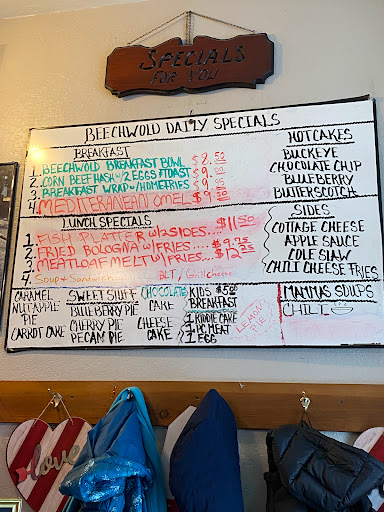 SPECIALS
FOR YOU
BEECHWOLD DAILY SPECIALS
BREAKFAST
1. BEECHWOLD BREAKFAST BOWL $8.50
2. CORN BEEF HASH w/2 EGGS & TOAST $9.00
3. BREAKFAST WRAP w/HOMEFRIES $9.00
4. MEDITERANEAN OMEL $9.50
HOTCAKES
BUCKEYE
CHOCOLATE CHIP
BLUEBERRY
BUTTERSCOTCH
LUNCH SPECIALS
1 FISH PLATTER w/2 SIDES.... $11.50
2 FRIED BOLOGNA w/FRIES.... $9.75
2 MEATLOAF MELT w/FRIES... $12.25
4 Soup & Sandwich BLT/Grill Cheese
SIDES
COTTAGE CHEESE
APPLE SAUCE
COLE SLAW
CHILI CHEESE FRIES
SWEET STUFF
CARAMEL
NUT APPLE
PIE
CARROT CAKE
BLUEBERRY PIE
CHERRY PIE
PECAN PIE
CHOCOLATE
CAKE
CHEESE
CAKE
KIDS $5.00
BREAKFAST
1 KIDDIE CAKE
1 PC MEAT
1 EGG
LEMON
PIE
MAMMAS SOUPS
CHILI
love